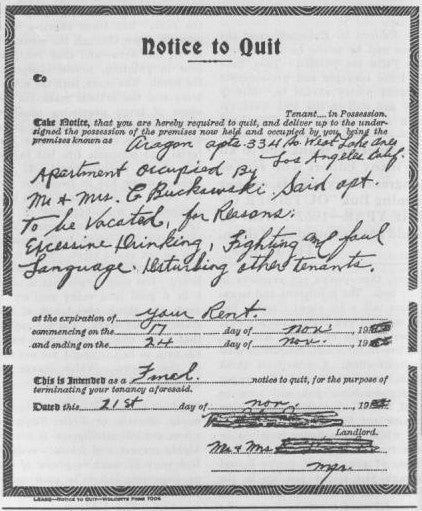 Notice to Quit
To
Tenant.... in Possession.
Take Notice, that you are hereby required to quit, and deliver up to the under-
signed the possession of the premises now held and occupied by you, being the
premises known as Aragon apts. 334 So West Lake Ave
Los Angeles Calif.
Apartment Occupied By
Mr & Mrs. C Buckowski. Said apt.
To be Vacated, for Reasons:
Excessive Drinking, Fighting and foul
Language. Disturbing other tenants.
at the expiration of your Rent.
commencing on the 17 day of Nov. 19
and ending on the 24 day of Nov. 19
This is Intended as a Final. notice to quit, for the purpose of
terminating your tenancy aforesaid.
Dated this 21st day of Nov. , 19
Landlord.
Mr & Mrs
Mgr.
LEASE—NOTICE TO QUIT—WOLCOTTS FORM 1004